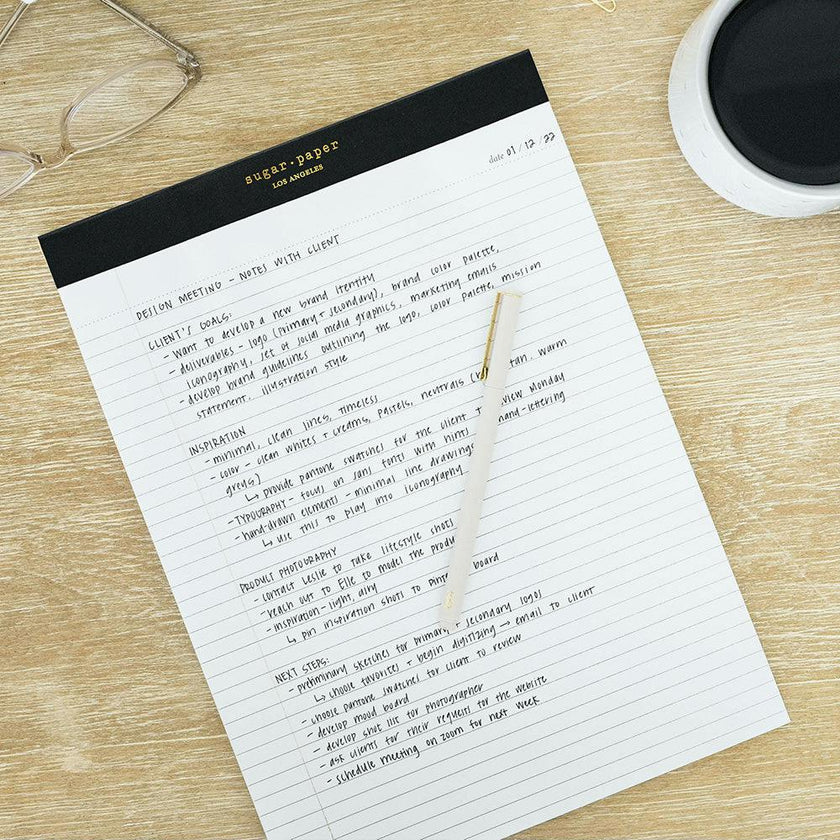 sugar.paper
LOS ANGELES
date 01 / 12 / 22
DESIGN MEETING - NOTES WITH CLIENT
CLIENT'S GOALS:
- want to develop a new brand identity
- deliverables - logo (primary + secondary), brand color palette,
iconography, set of social media graphics, marketing emails
- develop brand guidelines outlining the logo, color palette, mission
statement, illustration style
INSPIRATION
- minimal, clean lines, timeless
- color - clean whites + creams, pastels, neutrals ( tan, warm
greys)
↳ provide pantone swatches for the client Monday
- TYPOGRAPHY - focus on sans fonts with hints hand-lettering
- hand-drawn elements - minimal line drawings
↳ use this to play into iconography
PRODUCT PHOTOGRAPHY
- contact Leslie to take lifestyle shots
- reach out to Elle to model the
- inspiration - light, airy
↳ pin inspiration shots to board
NEXT STEPS:
- preliminary sketches for primary + secondary logos
↳ choose favorites + begin digitizing → email to client
- choose pantone swatches for client to review
- develop mood board
- develop shot list for photographer
- ask clients for their requests for the website
- schedule meeting on zoom for next week